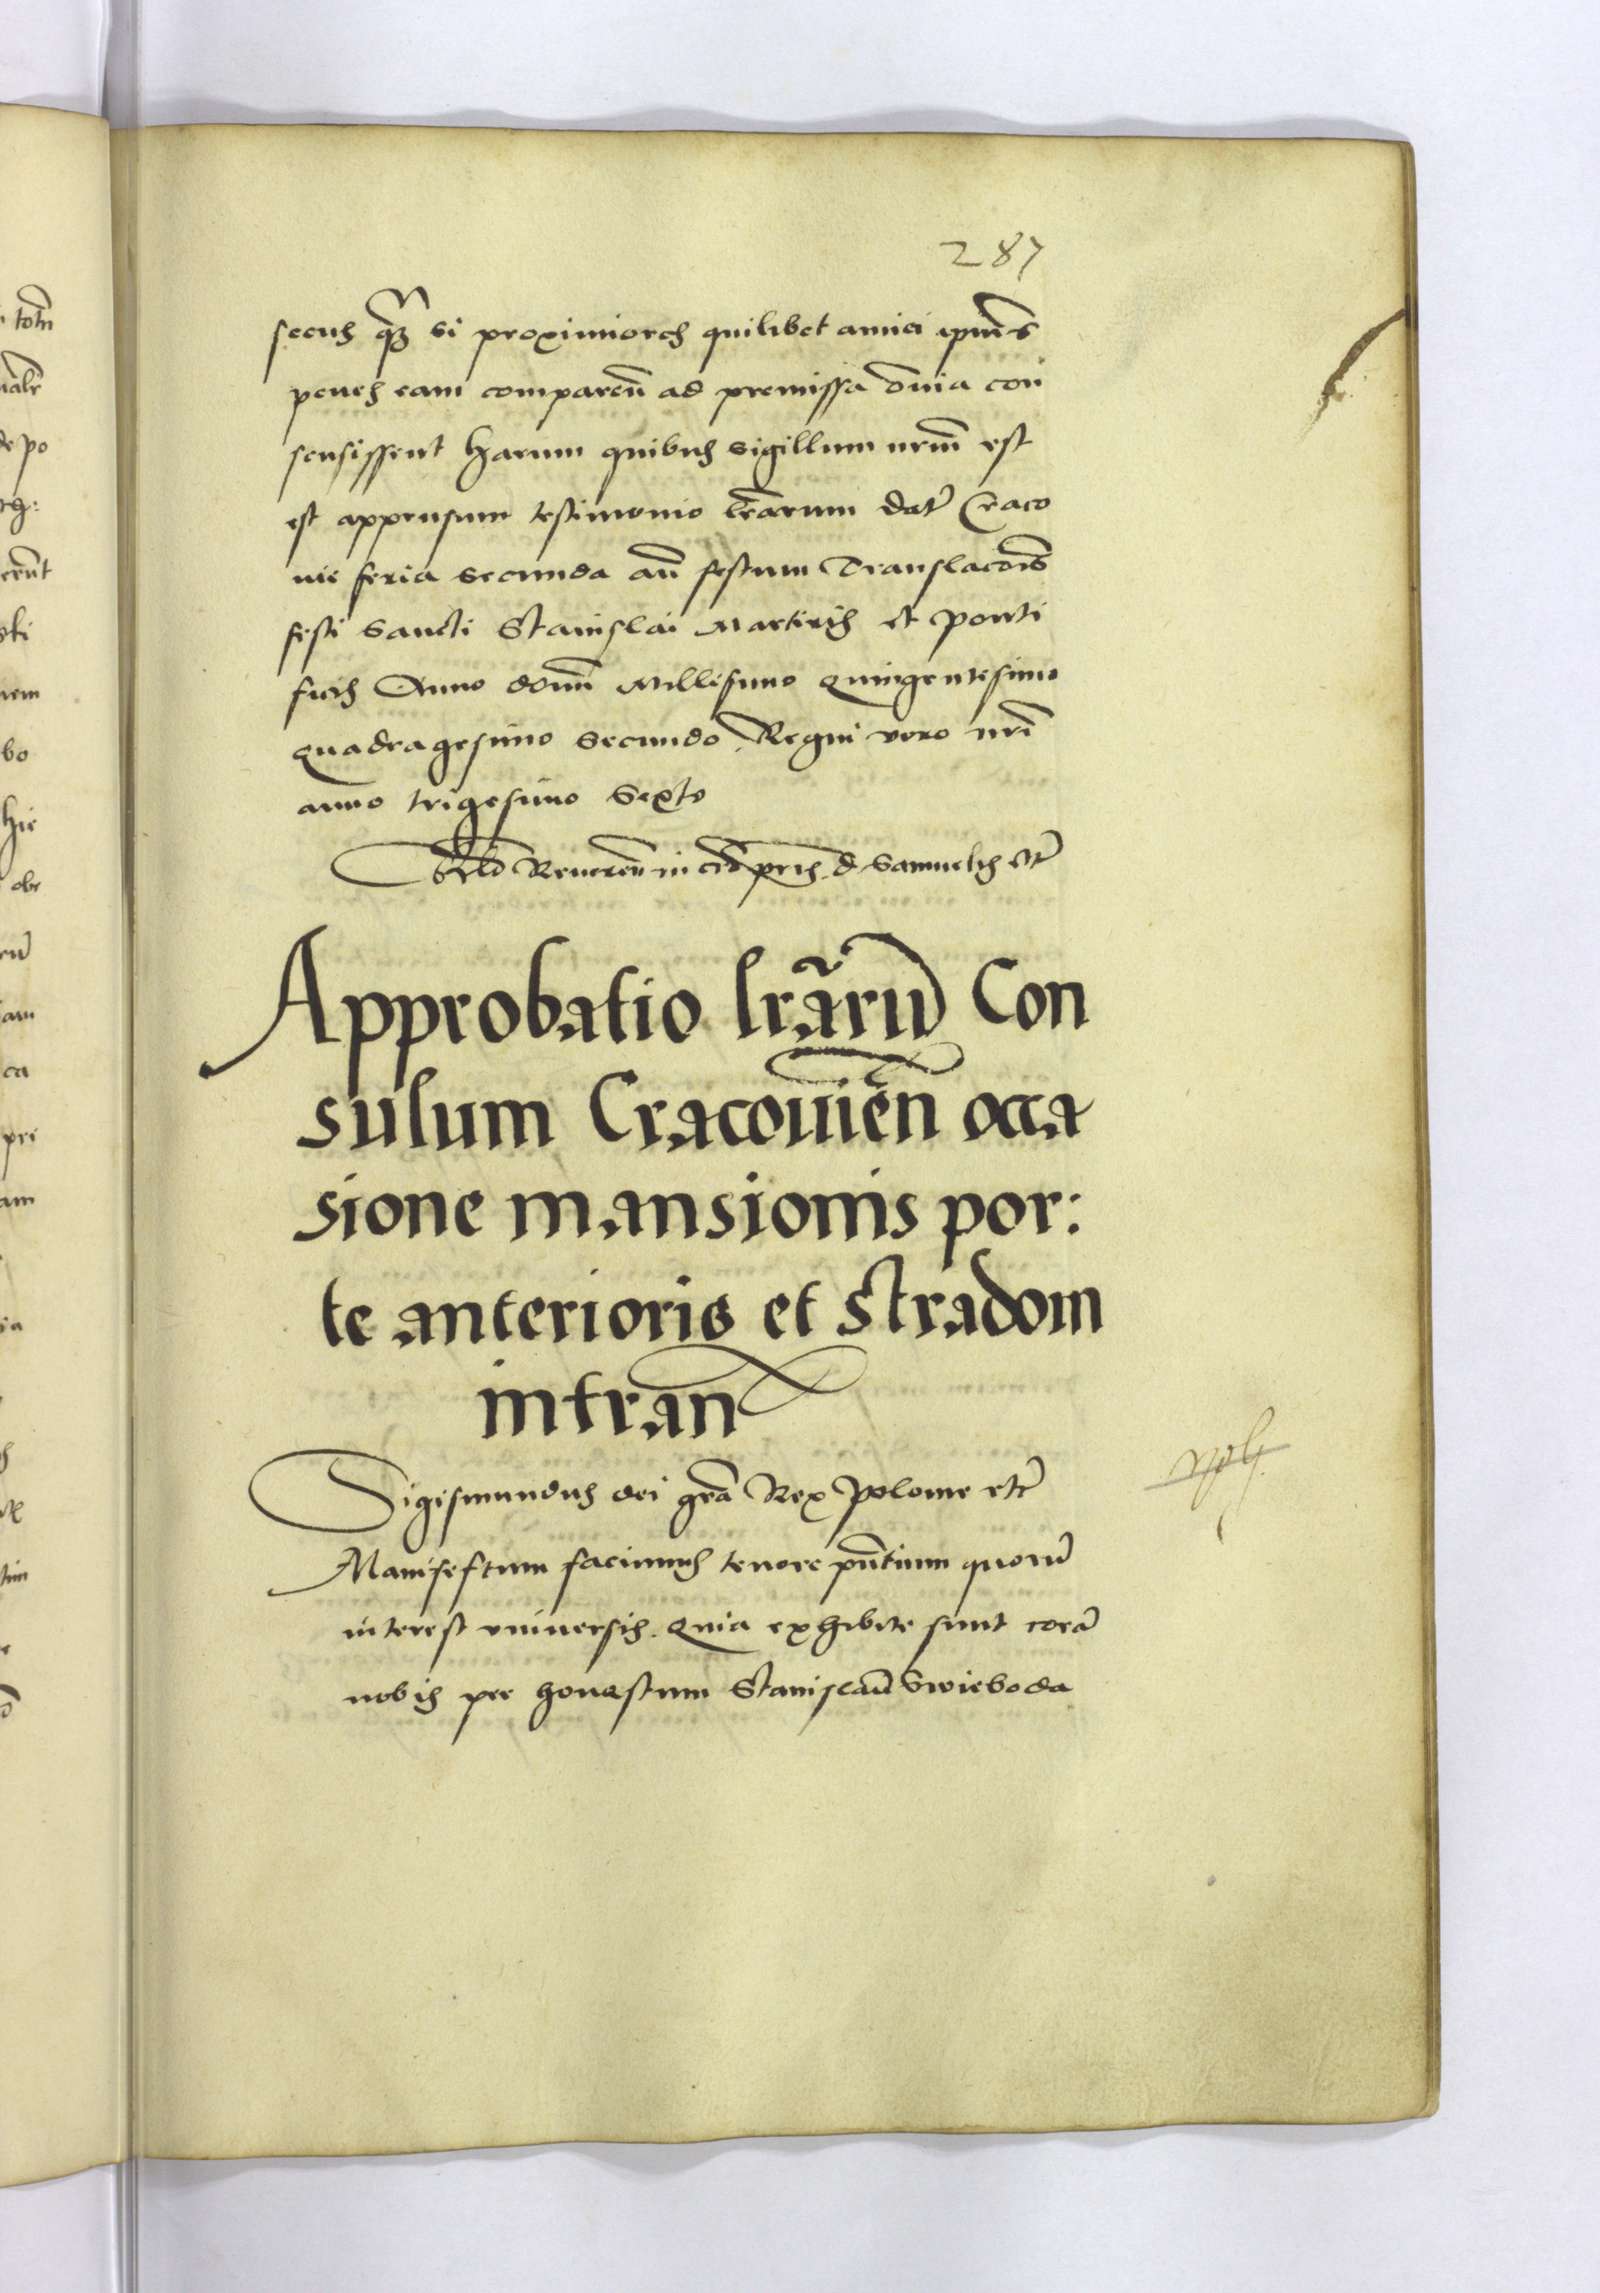 287
secus q̃ȝ si proximiores quilibet amici ipius
penes eam comparen̄ ad premissa om̄ia con
sensissent harum quibus sigillum nr̄m est
est appensum testimonio lr̄arum dat̄ Craco
uie feria secunda an̄ festum Translac̄ois
festi sancti Stanislai Martiris et ponti
ficis Anno domi Millesimo Quingentesimo
quadragesimo secundo Regni vero nr̄i
anno trigesimo sexto
Reveren̄ in cr̄o pr̄is d Samuelis etc̄
Approbatio lr̄arū Con
sulum Cracouieñ occa
sione mansionis por:
te anterioris et Stradom
intran̄
Sigismundus dei gr̄a Rex Polonie etc̄
Manifestum facimus tenore pn̄tium quorū
interest vniuersis. Quia exhibite sunt corā
nobis per honestum Stanislaū Swieboda